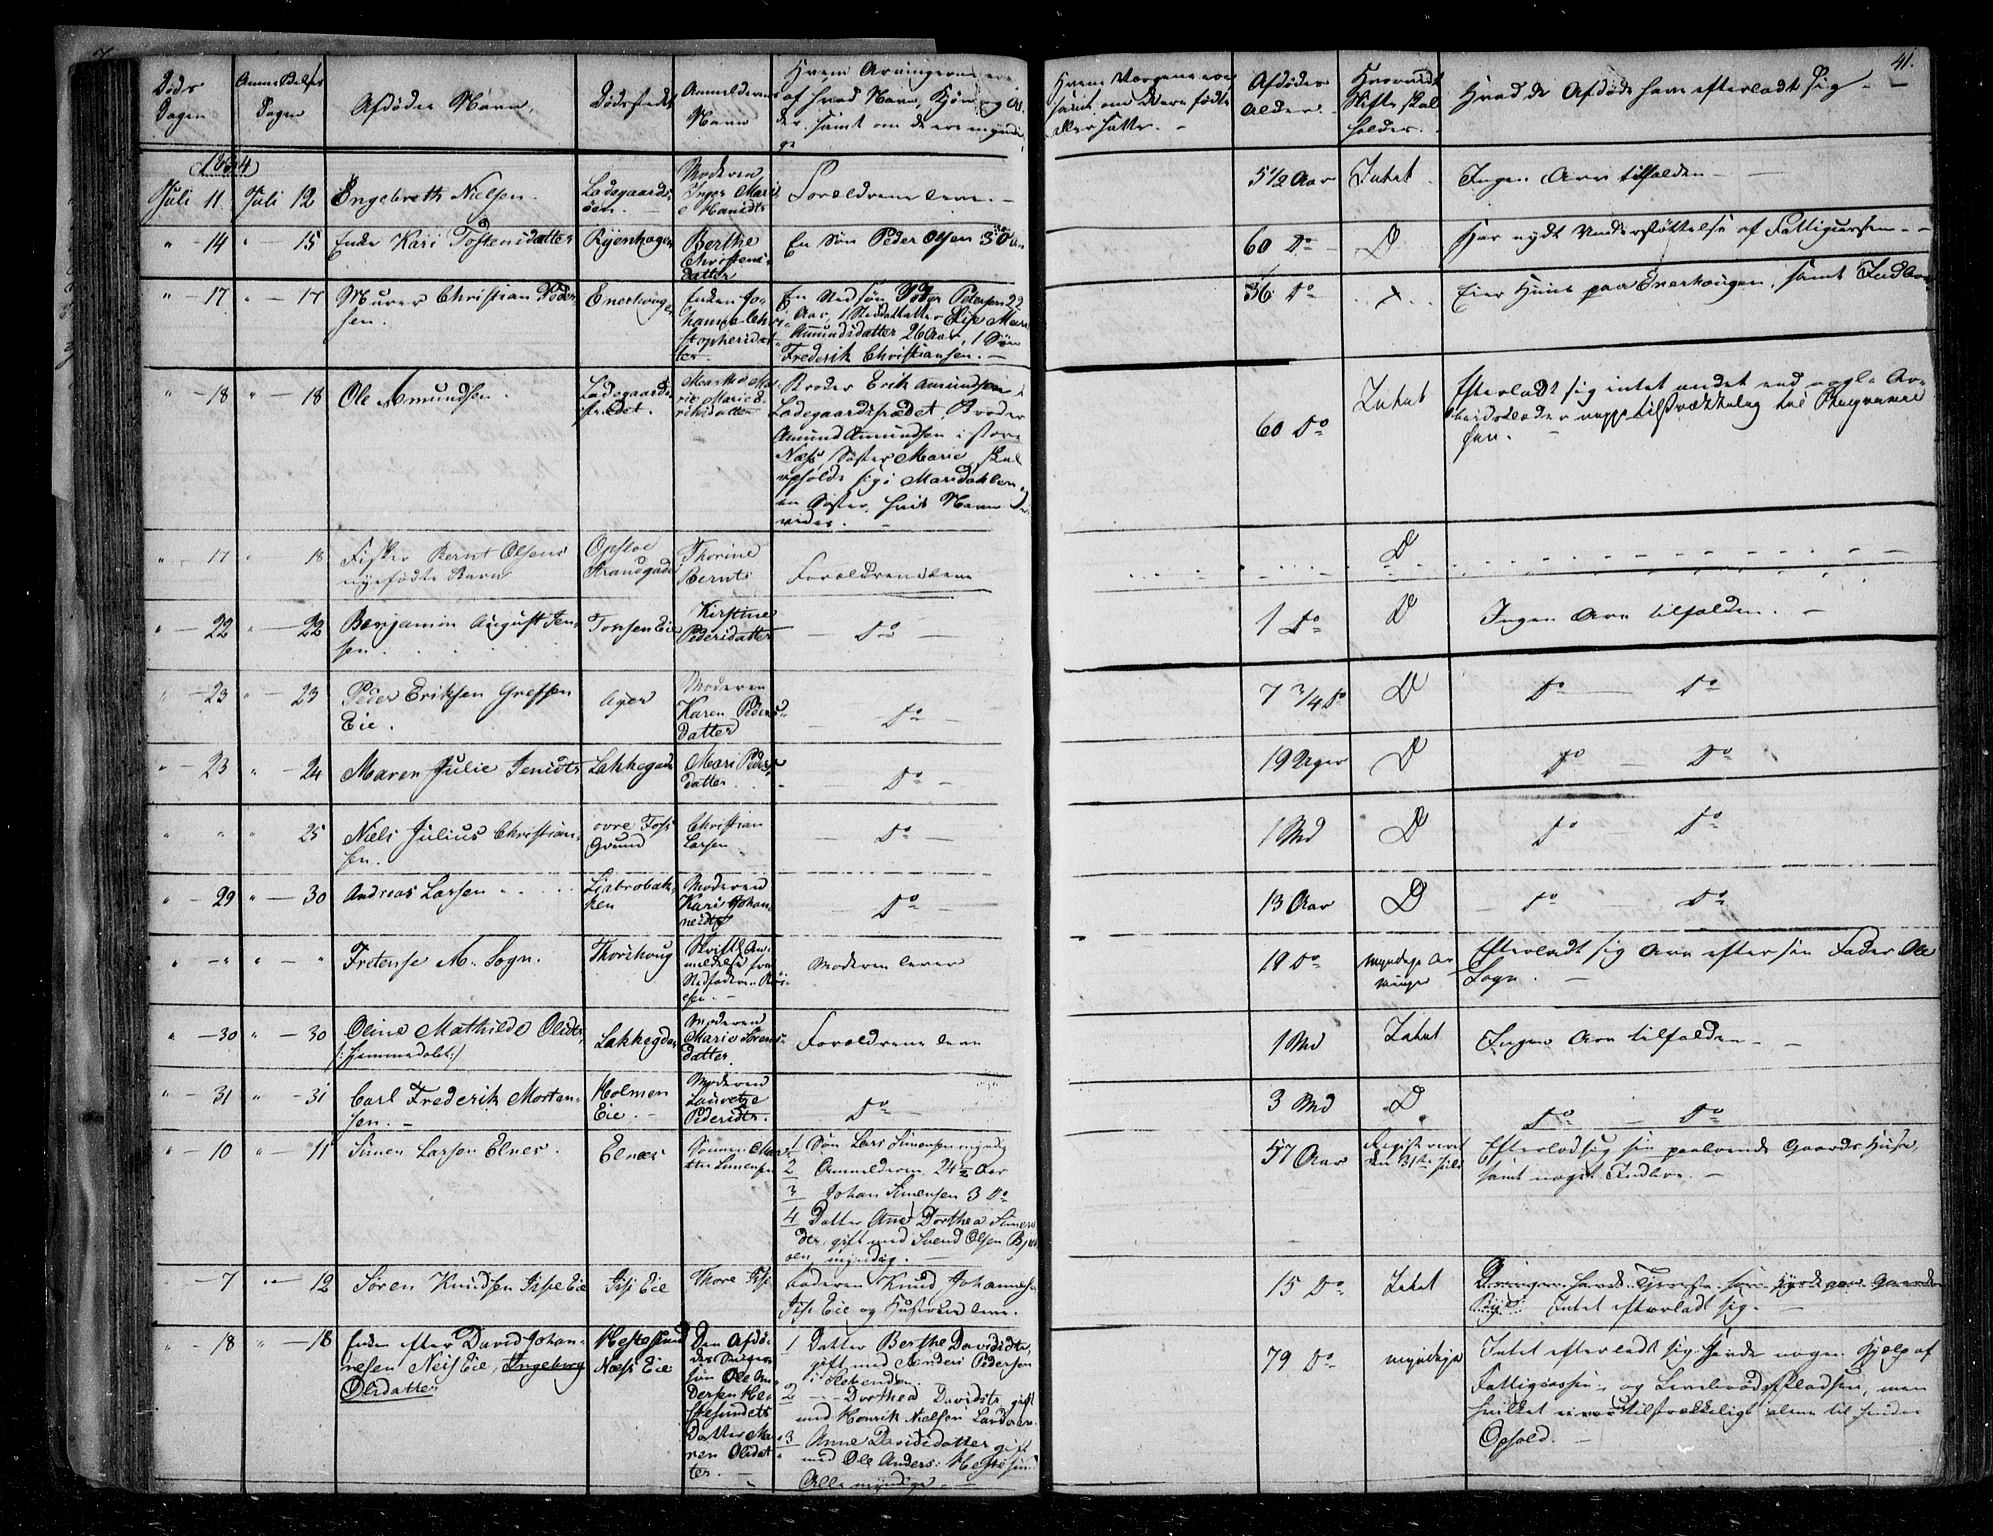 41.
Døds Dagen
Anmeldelses Dagen
Afdødes Navn.
Dødsstedet
Anmelderens Navn
Hvem Arvingerne ere af hvad Navn, Kjøn og Alder, samt om de ere myndige
HvemVærgerne ere samt om de ere fødte eller satte. -
Afdødes Alder.
Hvorvidt Skifte skal holdes.
Hvad de Afdøde have efterladt sig. -
1834
Juli 11. Juli 12 Engebreth Nielsen. Ladegaardsøen. Moderen Inger Marie Forældrene leve. - 5 1/2 Aar Intet. Ingen Arv tilfalden -
" 14 " - 15 Enke Kari Tostensdatter Ryenhagen Berthe Christensdatter En Søn Peder Olsen 30 Aar 60 Do D Har nydt Understøttelse af Fattigcassen -
" - 17 " - 17 Murer Christian Pedersen. Enerhougen Enken Johanne Christophersdatter. En Stedsøn Peter Petersen 29 Aar, 1 Steddatter Else Marie Amundsdatter 26 Aar, 1 Søn Frederik Christiansen. - 36 Do x. Eier Huus paa Enerhougen, samt Indboe
" - 18 " - 18 Ole Amundsen. Ladegaardsstrædet. Marthe Marie Eriksdatter Broder Erik Amundsen i Ladegaardsstrædet, Broder Amund Amundsen i store Næss, Søster Marie, skal opholde sig i Maridahlen og en Søster, hvis Navn ei vides. - 60 Do Intet Efterladt sig intet andet end nogle Arbeidsklæder neppe tilstrækkelig til Begravelsen. -
" - 17 " 18 Fisker Bernt Olsens nyefødte Barn Opsloe Strandgade Thorine Bernts Forældrene leve D
" - 22 " - 22 Benjamin August Jensen. Tonsen Eie Kirstine Pedersdatter - Do - 1 Do D Ingen Arv tilfalden. -
" - 23 " - 23 Peder Eriksen Grefsen Eie. Ager Moderen Karen Pedersdatter - Do - 7 3/4 Do D Do - Do
" - 23 " - 24 Maren Julie Jensdtr Lakkegade Mari Pedersdatter. - Do - 19 Uger D Do - Do
" " " 25 Niels Julius Christiansen. øvre Foss Grund Christian Larsen - Do - 1 Md D Do Do
" - 29 " - 30 Andreas Larsen Liabrobakken Moderen Kari Johannesdtr - Do - 13 Aar D - Do - Do
" - " " - " M. Sogn. Thorshoug Skriftl. Anmeldelse fra Stedfaderen Moderen lever 19 Do myndige Arvinger Efterladt sig Arv efter sin Fader Ole Sogn. -
" - 30 " - 30 Oline Mathilde Olsdtr /: Hemmedalt :/ Lakkegden Moderen Marie Sørensdatter. Forældrene leve 1 Md Intet Ingen Arv tilfalden - -
" - 31 " - 31 Carl Frederik Mortensen. - Holmen Eie. - Moderen Pedersdtr. Do - 3 Md D Do - Do
" - 10 " - 11 Simen Larsen Elnes. Elnæs Sønnen Simensen 1 Søn Lars Simensen myndig
2 Anmelderen 24 1/2 Aar
3 Johan Simensen 3 Do
4 Datter Ane Dorthea Simensdtr, gift med Svend Olsen myndig. 57 Aar Registreret den 31te Juli Efterlod sig sin paaboende Gaards Huse, samt noget Indboe. -
- 7 " - 12 Søren Knudsen Jisse Eie Jisse Eie Thore Faderen Knud Johannesen Eie og Hustrue leve. 15 Do Intet Intet efterladt sig. -
" - 18 " - 18 Enke efter David Johannesen Næs Eie, Ingeborg Olsdatter Hestesund Næss Eie Den Afdødes Svigersøn Ole Andersen Hestesundets Datter Maren Olsdatter. 1 Datter Berthe Davidsdtr, gift med Anders Pedersen
2 - - Dorthea Davidsdtr gift med Henrik Nielsen
3 Anne Davidsdatter gift med Ole Anders: Hestesund
Alle myndige. - 79 Do myndige Intet efterladt sig, havde nogen Hjelp af Fattigcassen og Levebrød af Pladsen, men hvilket ei var tilstrækkeligt alene til hendes Ophold. -